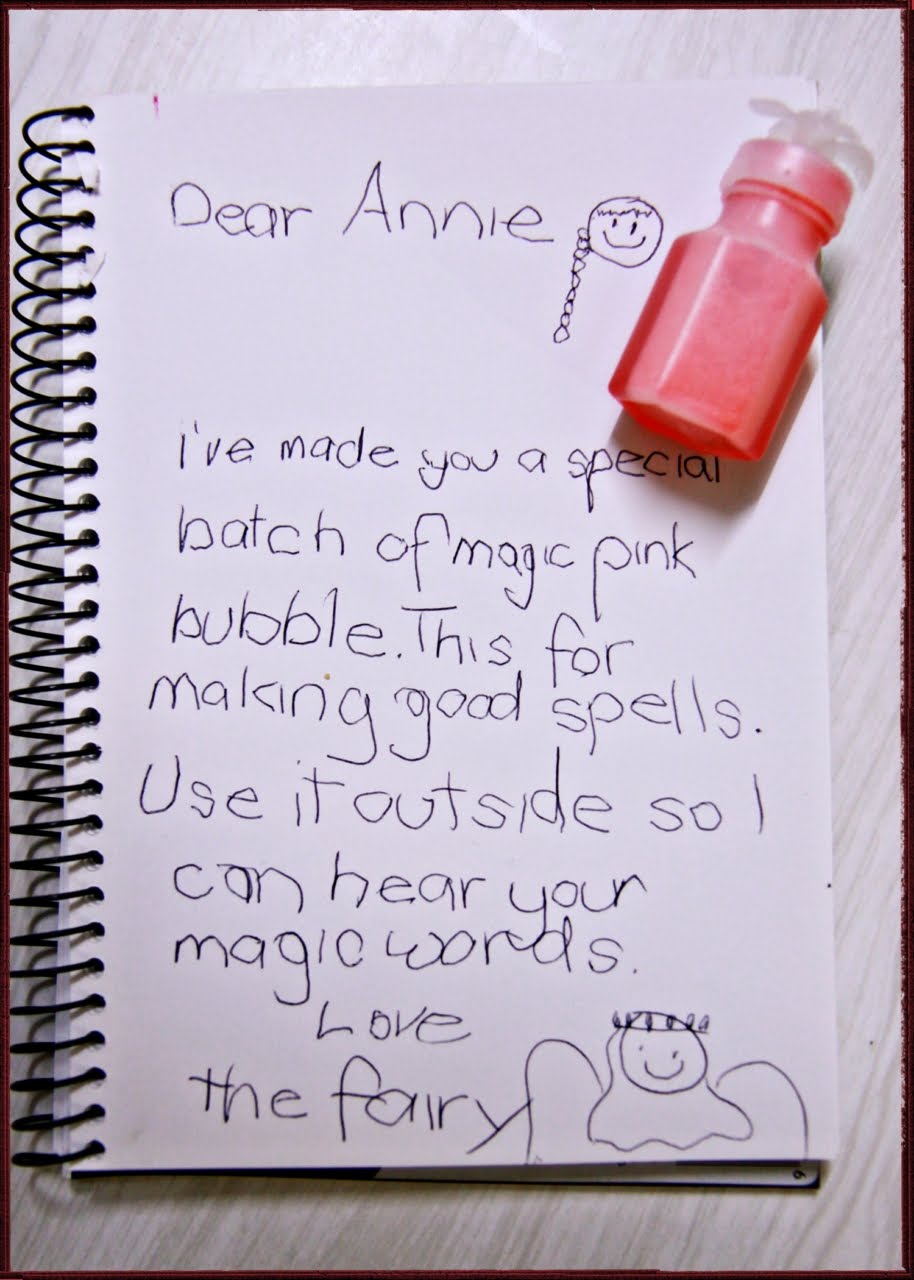 Dear Annie
i've made you a special
batch of magic pink
bubble. This for
making good spells.
Use it outside so I
can hear your
magic words.
Love
the fairy